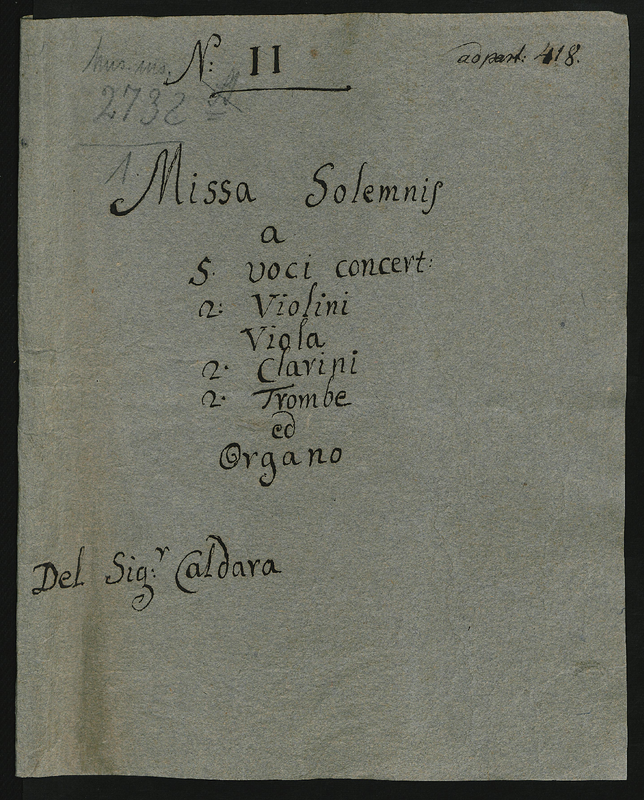 mus. ms.
N: II
ad part: 418.
2732
1.
Missa Solemnis
a
5. voci concert:
2: Violini
Viola
2. Clarini
2. Trombe
ed
Organo
Del Sig:r Caldara